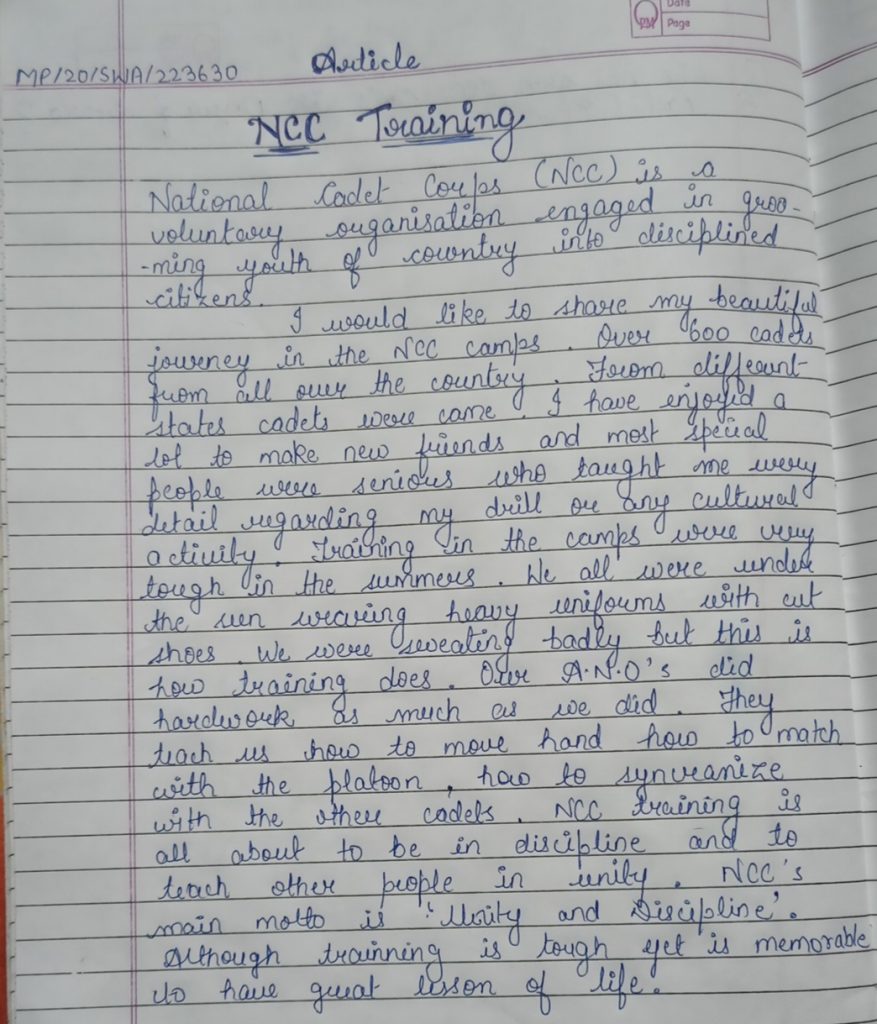 Date
PM Page
Article
MP/20/SWA/223630
NCC Training
National Cadet Corps (NCC) is a
voluntary organisation engaged in groo-
-ming youth of country into disciplined
citizens.
I would like to share my beautiful
journey in the NCC camps. Over 600 cadets
from all over the country. From different
states cadets were came. I have enjoyed a
lot to make new friends and most special
people were senious who taught me every
detail regarding my drill or any cultural
activity. Training in the camps were very
tough in the summers. We all were under
the sun wearing heavy uniforms with cut
shoes. We were sweating badly but this is
how training does. Our A.N.O's did
hardwork as much as we did. They
teach us how to move hand how to match
with the platoon, how to syncranize
with the other cadets. NCC training is
all about to be in discipline and to
teach other people in unity. NCC's
main motto is 'Unity and Discipline'.
Although trainning is tough yet is memorable
to have great lesson of life.